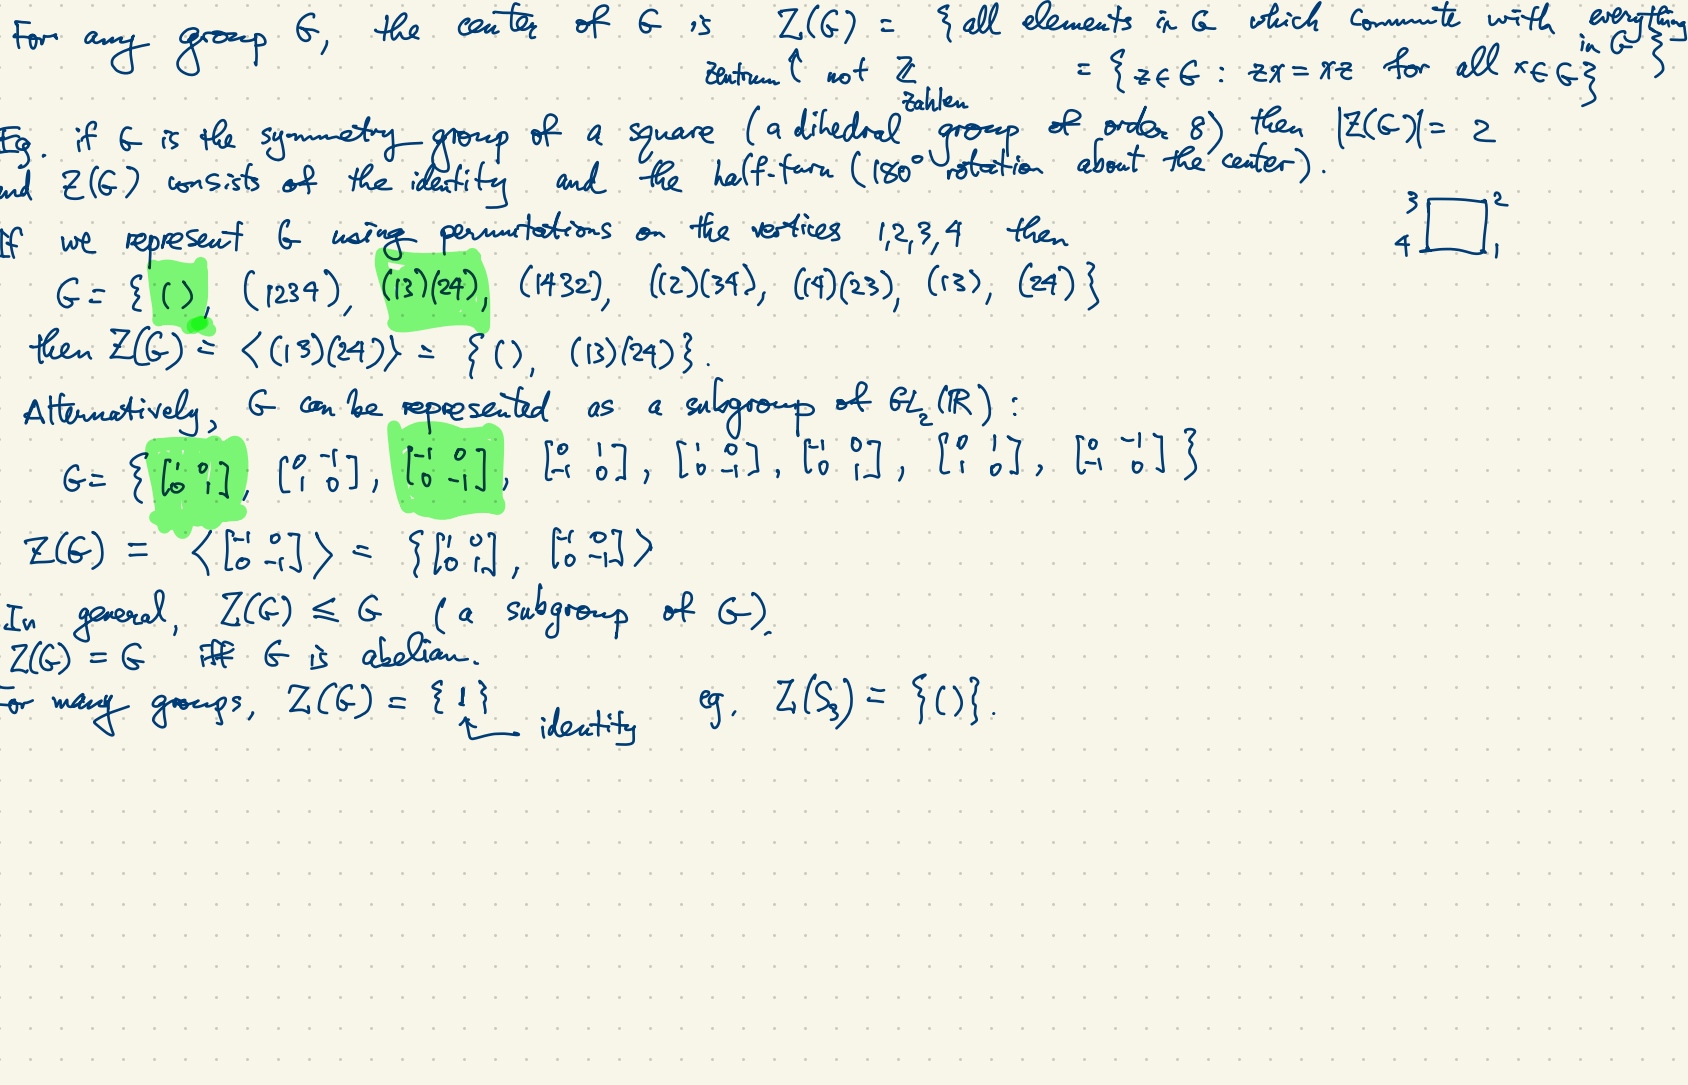 For any group G, the center of G is Z(G) = { all elements in G which commute with everything in G }
Zentrum ↑ not ℤ = { z ∈ G : zx = xz for all x ∈ G }
Zahlen
Eg. if G is the symmetry group of a square (a dihedral group of order 8) then |Z(G)| = 2
and Z(G) consists of the identity and the half-turn (180° rotation about the center).
3 2
4 1
If we represent G using permutations on the vertices 1,2,3,4 then
G = { (), (1234), (13)(24), (1432), (12)(34), (14)(23), (13), (24) }
then Z(G) = ⟨(13)(24)⟩ = { (), (13)(24) }.
Alternatively, G can be represented as a subgroup of GL₂(ℝ) :
G = { [1 0; 0 1], [0 -1; 1 0], [-1 0; 0 -1], [0 1; -1 0], [1 0; 0 -1], [-1 0; 0 1], [0 1; 1 0], [0 -1; -1 0] }
Z(G) = ⟨[-1 0; 0 -1]⟩ = { [1 0; 0 1], [-1 0; 0 -1] ⟩
In general, Z(G) ≤ G (a subgroup of G).
Z(G) = G iff G is abelian.
For many groups, Z(G) = { 1 } eg. Z(S₃) = { () }.
identity